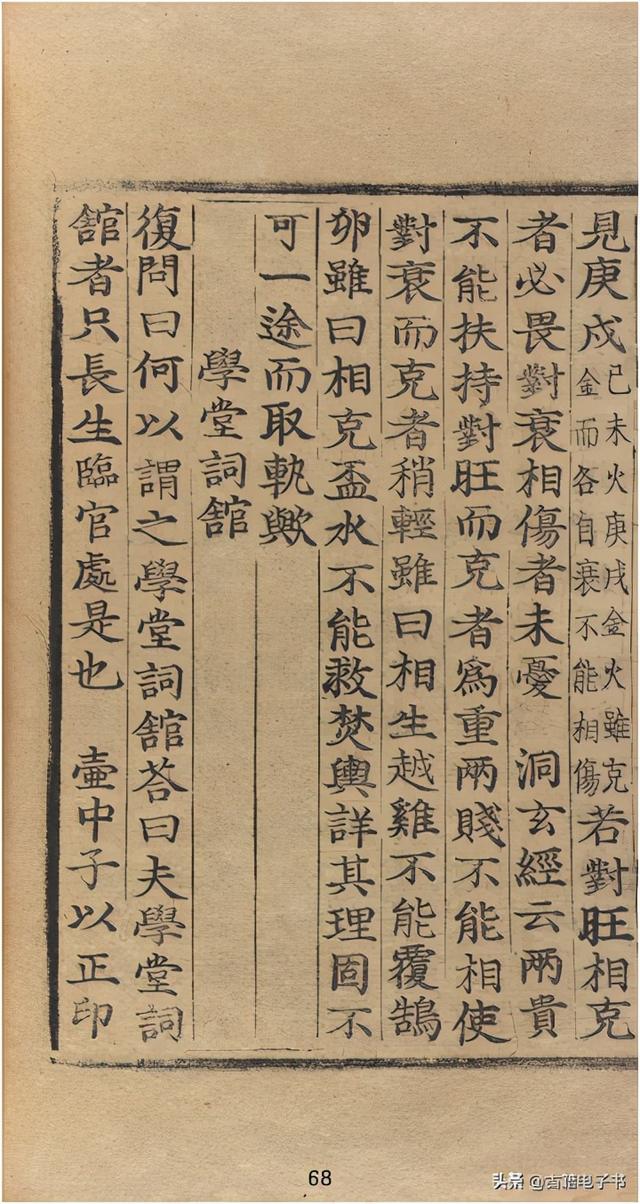 見庚戍己未火庚戌金火雖克金而各自衰不能相傷若對旺相克
者必畏對衰相傷者未憂　洞玄經云兩貴
不能扶持對旺而克者爲重兩賤不能相使
對衰而克者稍輕雖曰相生越雞不能覆鵠
卵雖曰相克盃水不能救焚輿詳其理固不
可一途而取軌歟
學堂詞舘
復問曰何以謂之學堂詞舘荅曰夫學堂詞
舘者只長生臨官處是也　壷中子以正印
68
头条 @古籍电子书